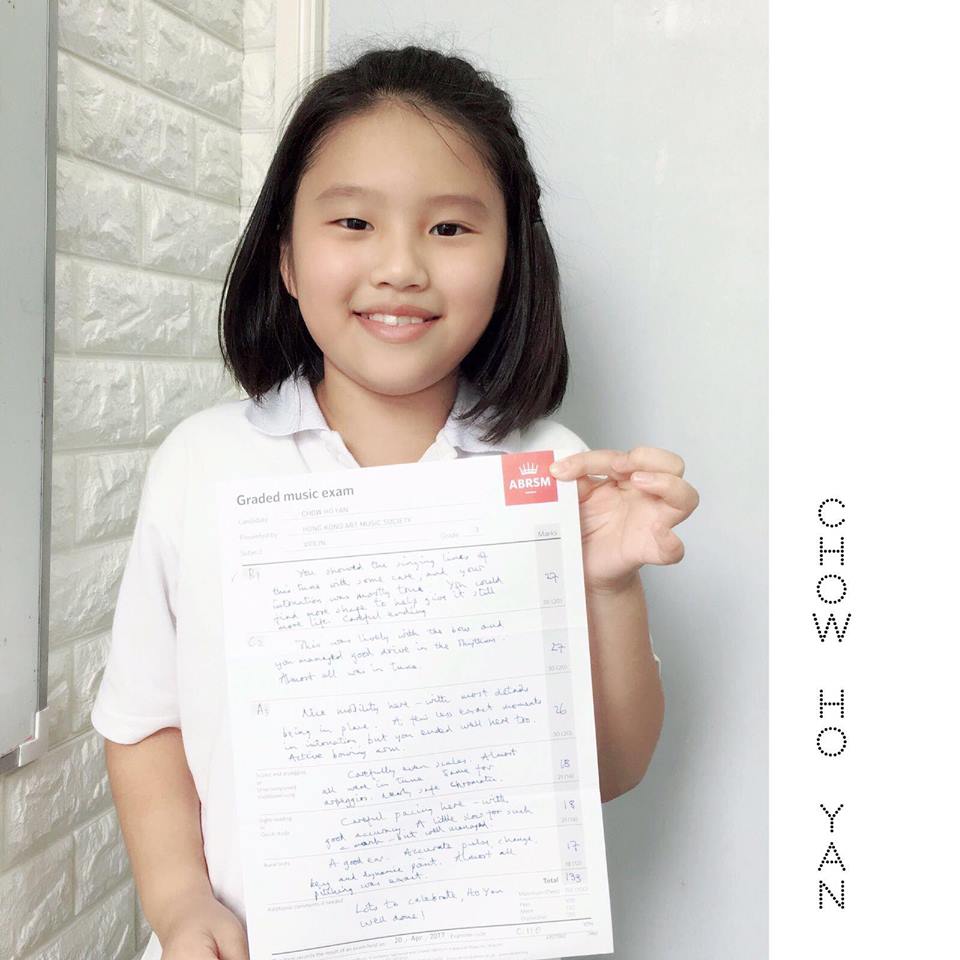 Graded music exam
ABRSM
Candidate CHOW HO YAN
Presented by HONG KONG ART MUSIC SOCIETY
Subject VIOLIN Grade 3 Marks
B1 You showed the singing lines of
this tune with some care, and your
intonation was mostly true. You could
find more shape to help give it still
more life. Careful ending
27
30 (20)
C2 This was lively with the bow and
you managed good drive in the rhythms.
Almost all was in tune.
27
30 (20)
A3 Nice mobility here - with most details
being in place. A few less exact moments
in intonation but you ended well here too.
Active bowing arm.
26
30 (20)
Scales and arpeggios
or
Unaccompanied
traditional song
Carefully even scales. Almost
all were in tune. Same for
arpeggios. Nearly safe chromatic.
18
21 (14)
Sight-reading
or
Quick study
Careful pacing here - with
good accuracy. A little slow for such
a march - but well managed.
18
21 (14)
Aural tests
A good ear. Accurate pulse, change,
key and dynamic point. Almost all
pitching was exact.
17
18 (12)
Additional comments (if needed)
Lots to celebrate, Ho Yan
Well done!
Total 133
Maximum (Pass) 150 (100)
Pass 100
Merit 120
Distinction 130
20 Apr 2017 Examiner code
CHOW HO YAN